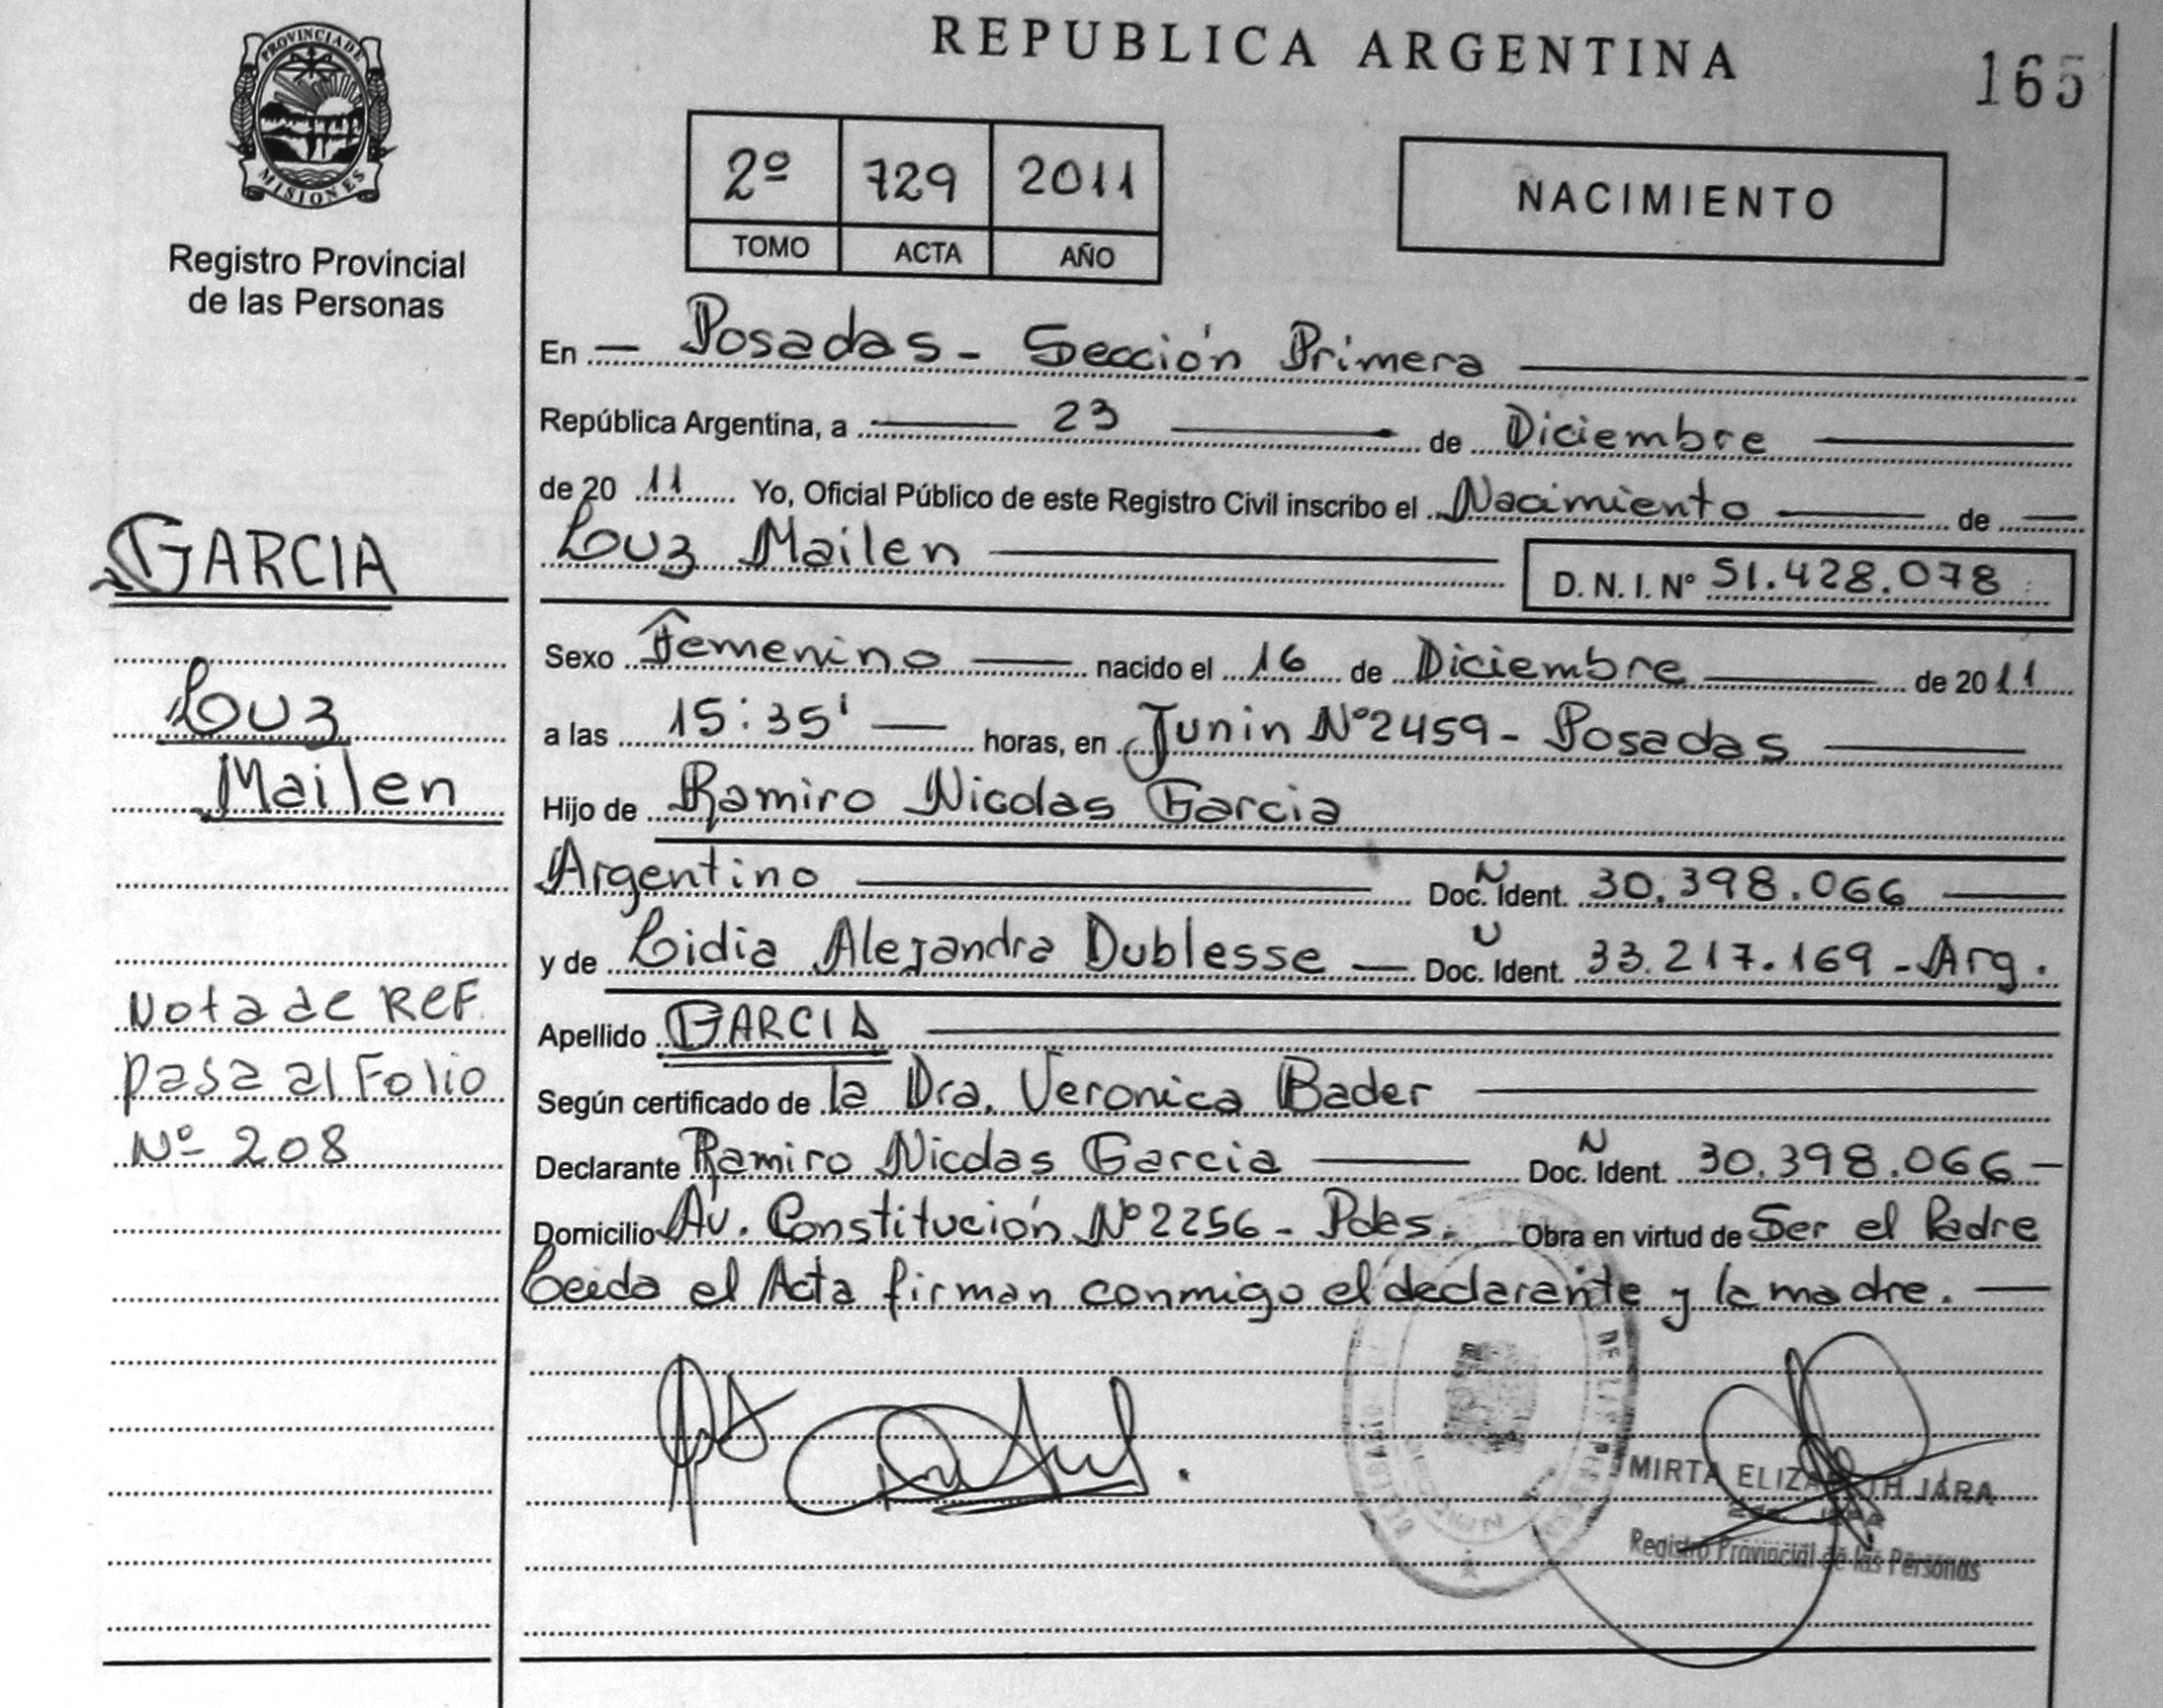 REPUBLICA ARGENTINA
165
PROVINCIA DE
MISIONES
Registro Provincial
de las Personas
2º 729 2011
TOMO ACTA AÑO
NACIMIENTO
En Posadas - Sección Primera
República Argentina, a 23 de Diciembre
de 2011 Yo, Oficial Público de este Registro Civil inscribo el Nacimiento de
Luz Mailen
D. N. I. Nº 51.428.078
GARCIA
Luz
Mailen
Nota de REF.
pasa al Folio
Nº 208
Sexo Femenino nacido el 16 de Diciembre de 2011
a las 15:35' horas, en Junin Nº 2459 - Posadas
Hijo de Ramiro Nicolas Garcia
Argentino Doc. N Ident. 30.398.066
y de Lidia Alejandra Dublesse Doc. U Ident. 33.217.169 - Arg.
Apellido GARCIA
Según certificado de la Dra. Veronica Bader
Declarante Ramiro Nicolas Garcia Doc. N Ident. 30.398.066
Domicilio Av. Constitución Nº 2256 - Pdas. Obra en virtud de Ser el Padre
Leida el Acta firman conmigo el declarante y la madre.
MIRTA ELIZABETH JARA
Registro Provincial de las Personas